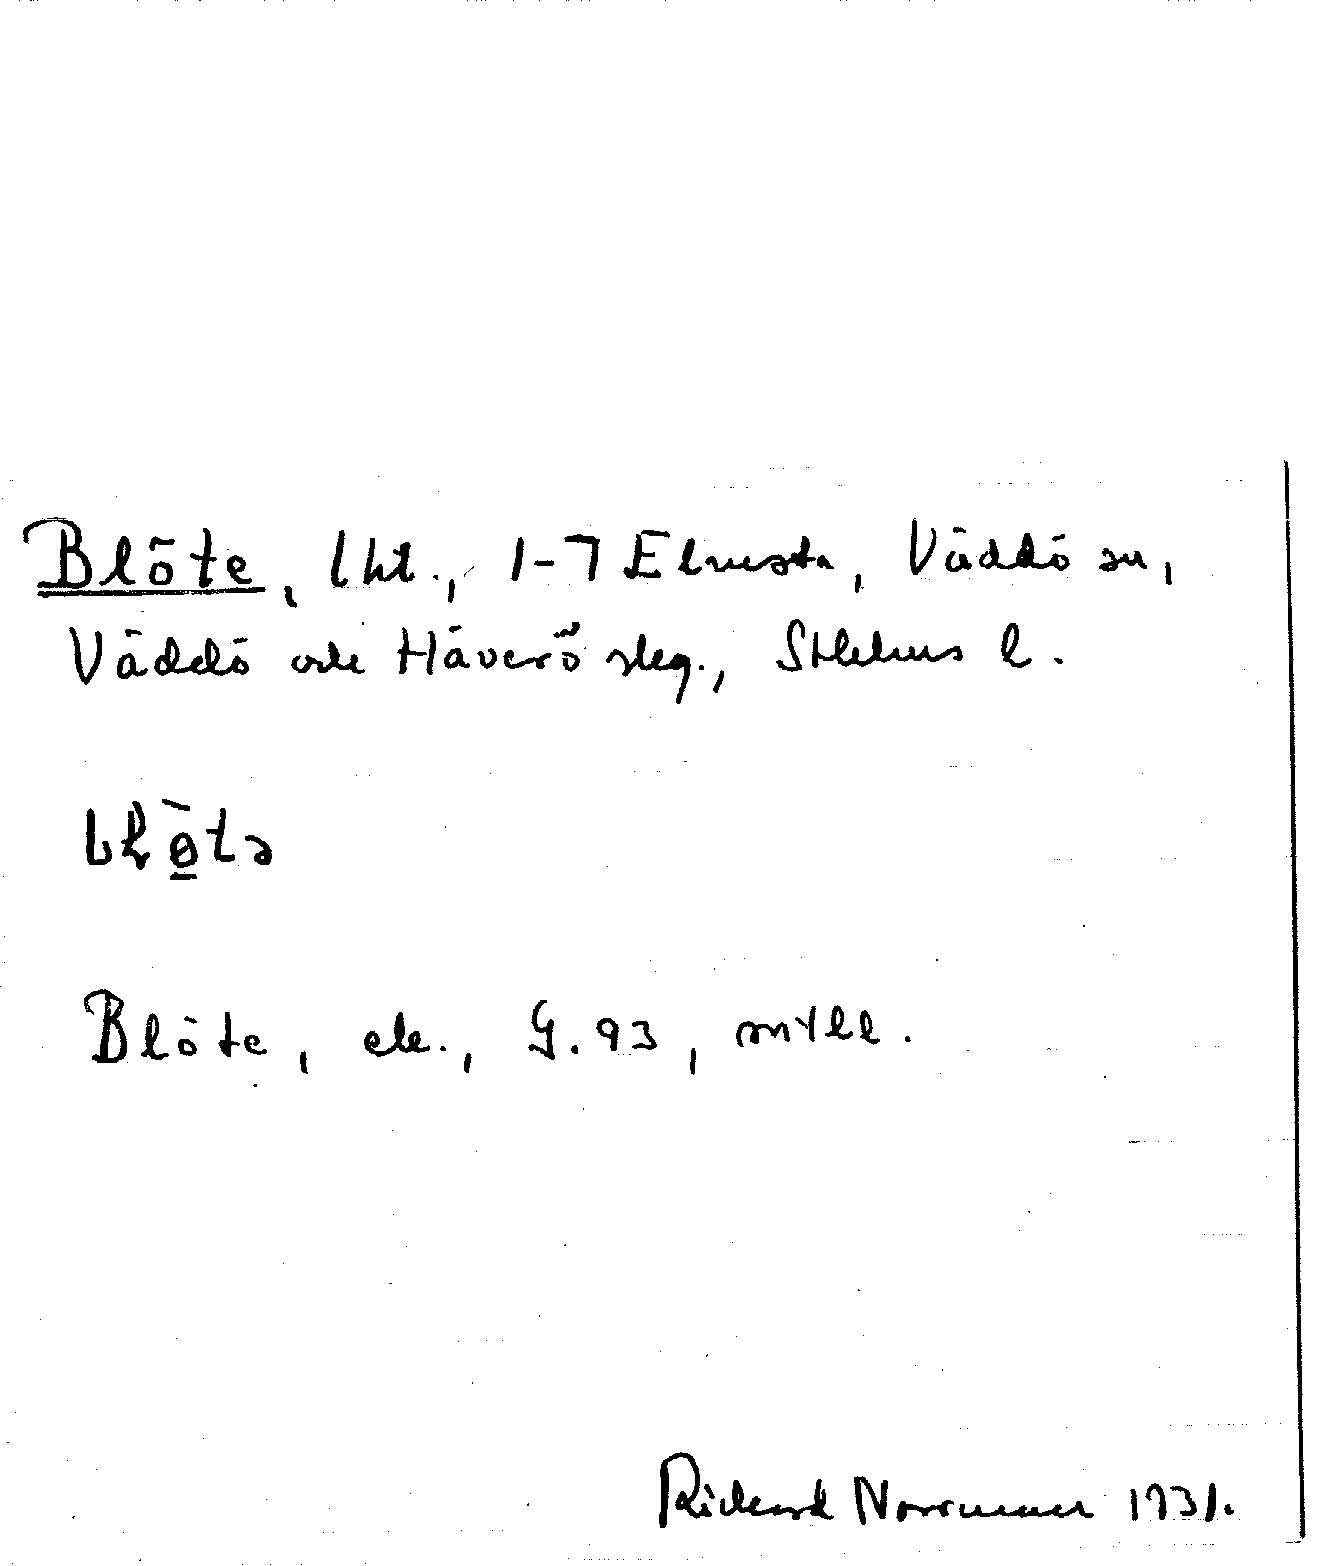 Blöte, lht., 1-7 Elmsta, Väddö sn,
Väddö och Häverö skg., Sthlms l.
Blöte, ek., G. 93,
Richard Norrman 1931.